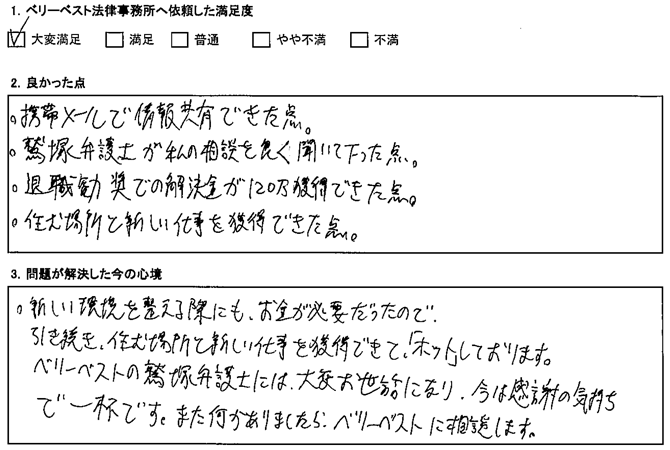 1. ベリーベスト法律事務所へ依頼した満足度
大変満足 満足 普通 やや不満 不満
2. 良かった点
。携帯メールで情報共有できた点。
。鷲塚弁護士が私の相談を良く聞いて下った点。
。退職勧奨での解決金が120万獲得できた点。
。住む場所と新しい仕事を獲得できた点。
3. 問題が解決した今の心境
。新しい環境を整える際にも、お金が必要だったので、
引き続き、住む場所と新しい仕事を獲得できて、「ホット」しております。
ベリーベストの鷲塚弁護士には、大変お世話になり、今は感謝の気持ち
で一杯です。また何かありましたら、ベリーベストに相談します。